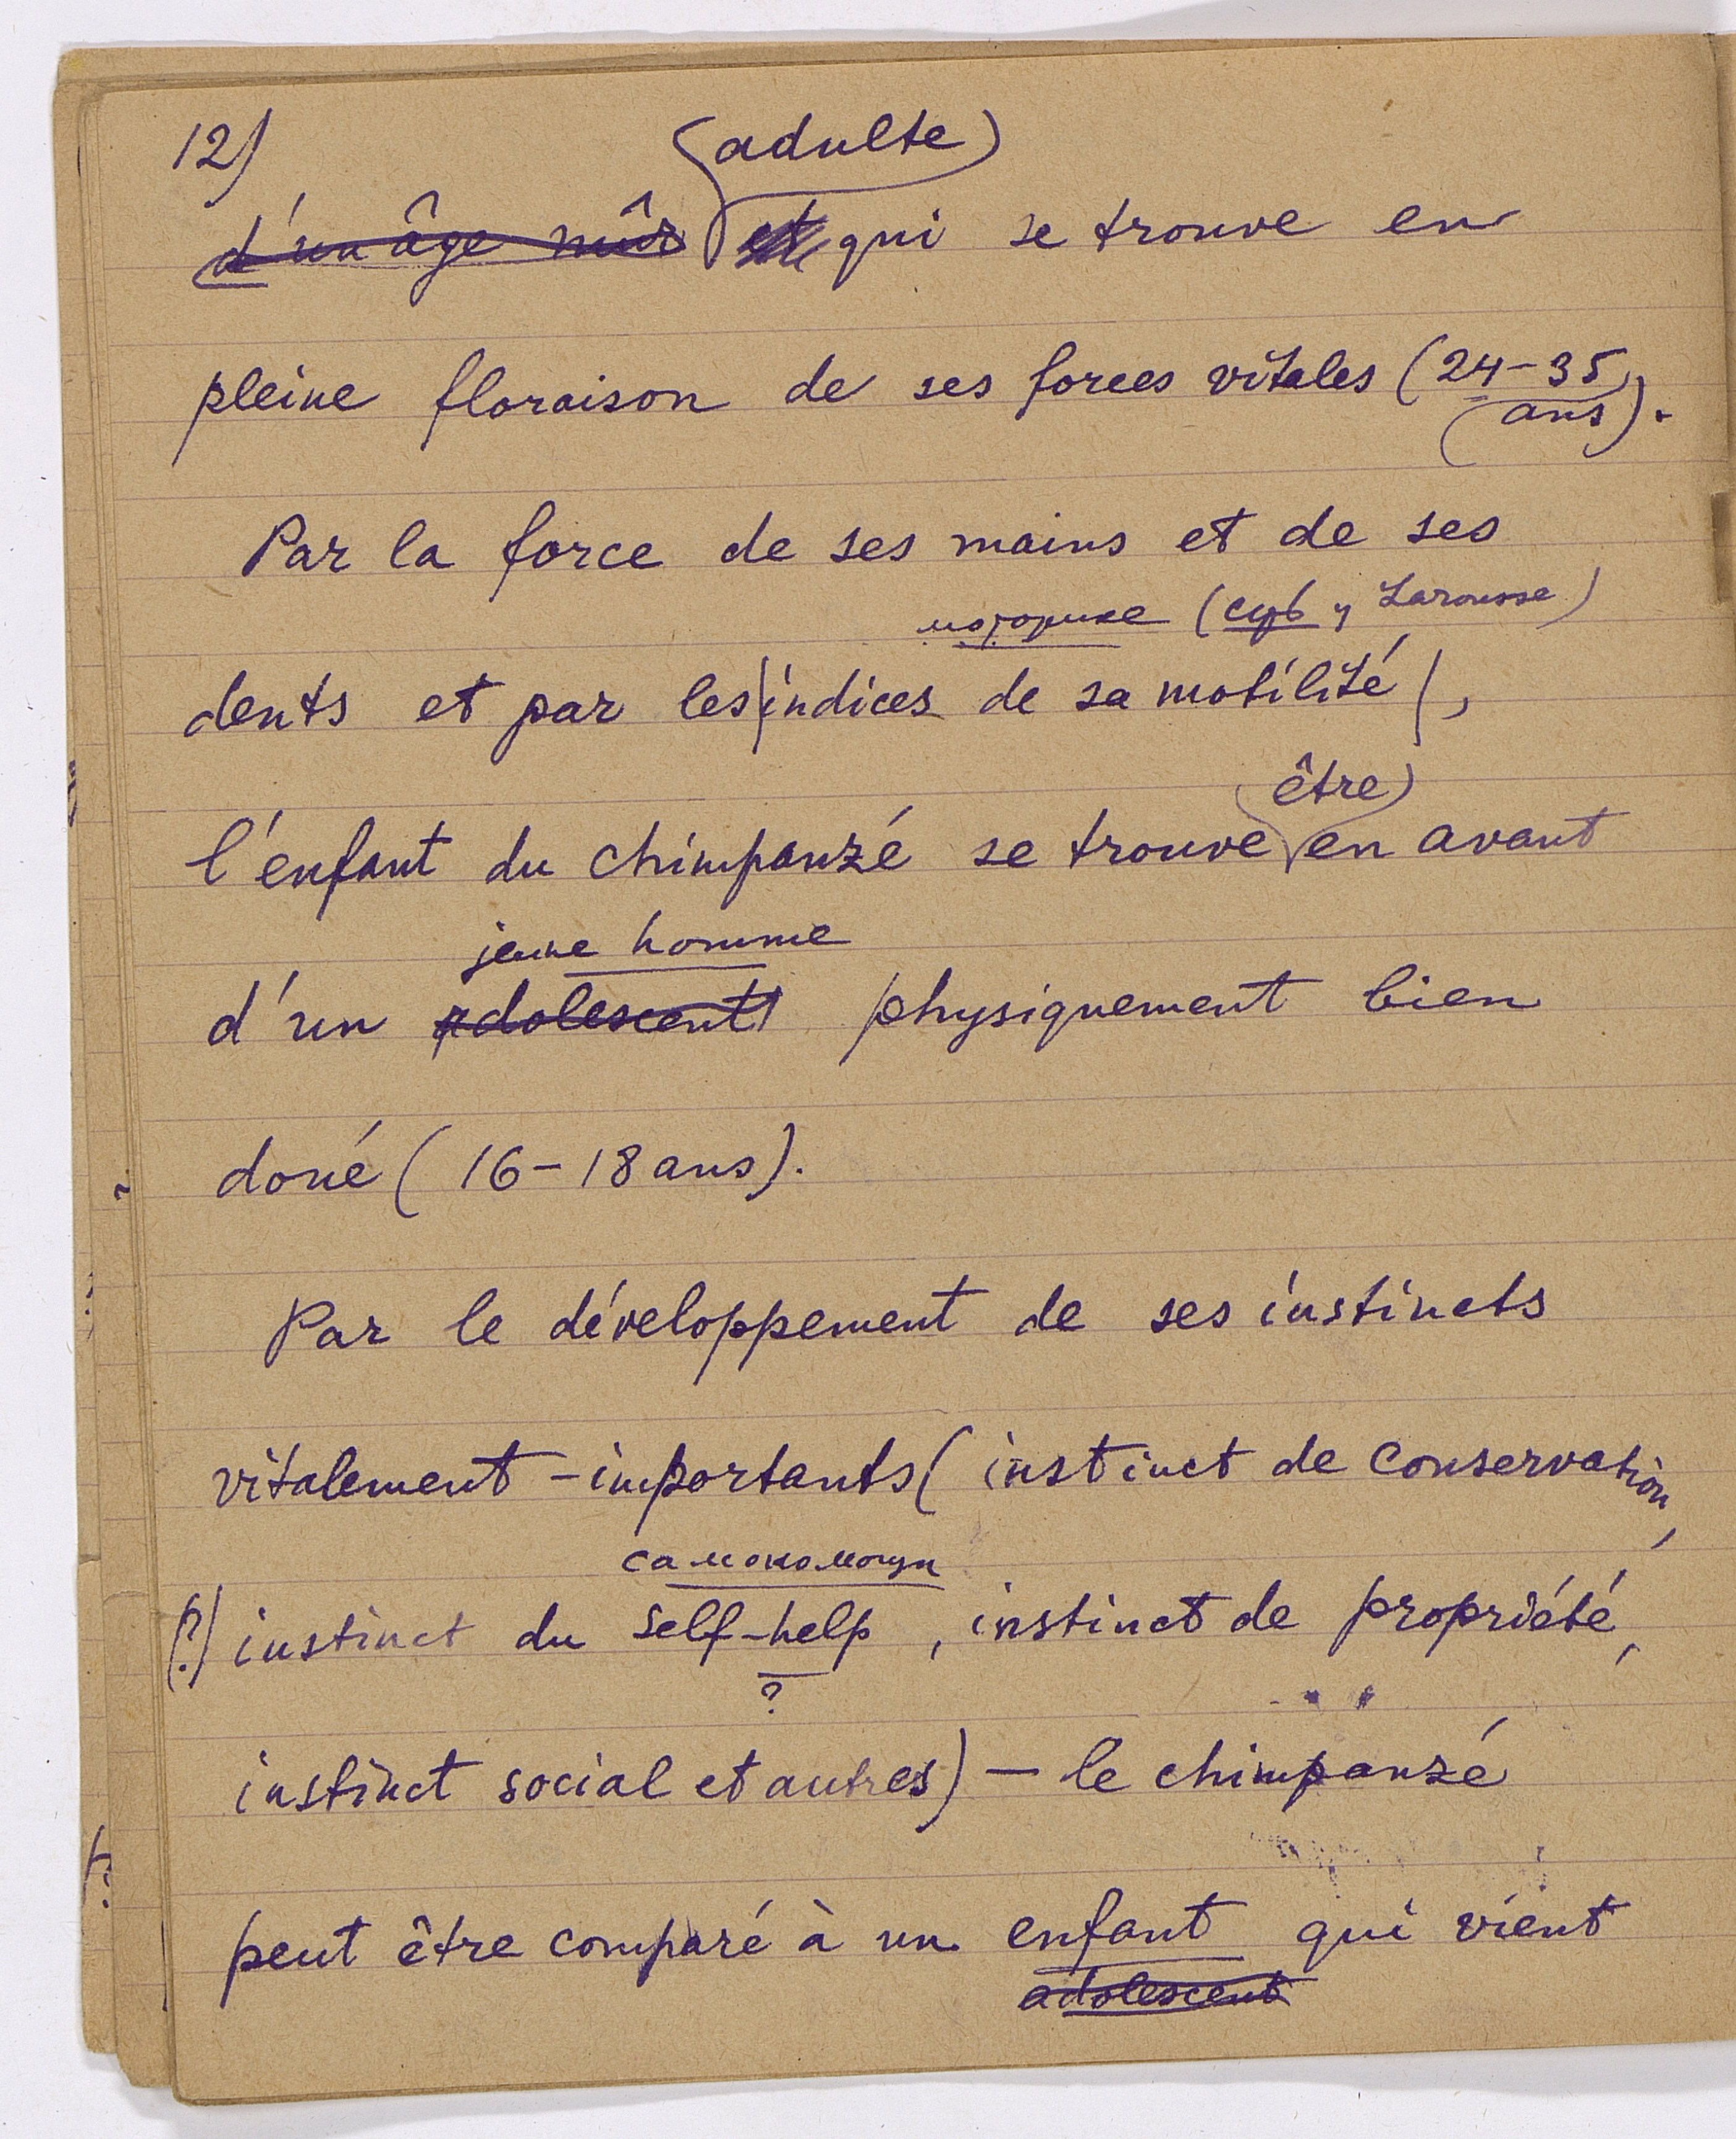 12)
(adulte)
d'un âge mûr et qui se trouve en
pleine floraison de ses forces vitales (24-35
ans).
Par la force de ses mains et de ses
моторике (Larousse)
dents et par les indices de sa motilité,
être
l'enfant du chimpanzé se trouve en avant
jeune homme
d'un adolescent physiquement bien
doué (16-18 ans).
Par le développement de ses instincts
vitalement-importants (instinct de conservation,
самопомощи
(?) instinct du self-help, instinct de propriété,
?
instinct social et autres) — le chimpanzé
peut être comparé à un enfant qui vient
adolescent